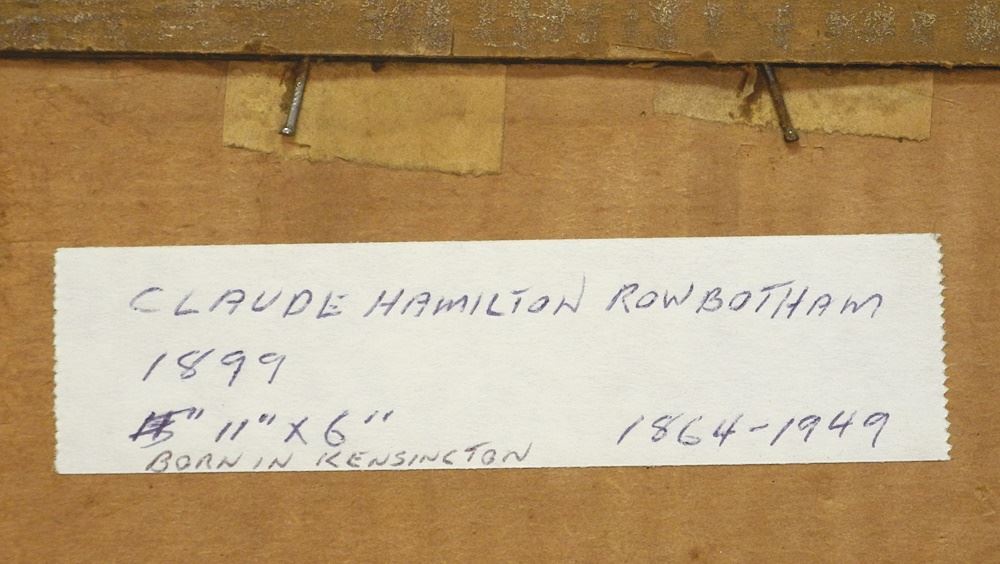 CLAUDE HAMILTON ROWBOTHAM
1899
11" x 6" 1864-1949
BORN IN KENSINGTON